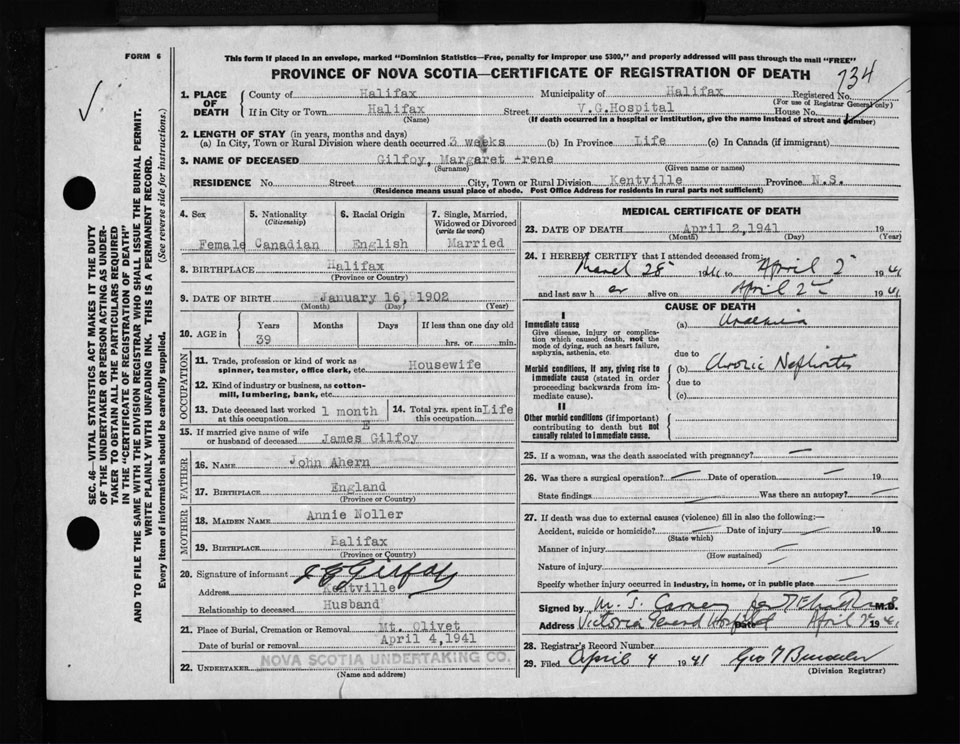 FORM 6
This form if placed in an envelope, marked "Dominion Statistics—Free, penalty for improper use $300," and properly addressed will pass through the mail "FREE"
PROVINCE OF NOVA SCOTIA—CERTIFICATE OF REGISTRATION OF DEATH
734
1. PLACE OF DEATH
County of Halifax Municipality of Halifax Registered No.
(For use of Registrar General only)
If in City or Town Halifax Street V.G.Hospital House No.
(Name) (If death occurred in a hospital or institution, give the name instead of street and number)
2. LENGTH OF STAY (in years, months and days)
(a) In City, Town or Rural Division where death occurred 3 weeks (b) In Province Life (c) In Canada (if immigrant)
3. NAME OF DECEASED Gilfoy, Margaret -rene
(Surname) (Given name or names)
RESIDENCE No. Street City, Town or Rural Division Kentville Province N.S.
(Residence means usual place of abode. Post Office Address for residents in rural parts not sufficient)
4. Sex Female
5. Nationality (Citizenship) Canadian
6. Racial Origin English
7. Single, Married, Widowed or Divorced (write the word) Married
8. BIRTHPLACE Halifax
(Province or Country)
9. DATE OF BIRTH January 16, 1902
(Month) (Day) (Year)
10. AGE in Years 39 Months Days If less than one day old hrs. or min.
OCCUPATION
11. Trade, profession or kind of work as spinner, teamster, office clerk, etc. Housewife
12. Kind of industry or business, as cotton-mill, lumbering, bank, etc.
13. Date deceased last worked at this occupation 1 month
14. Total yrs. spent in this occupation Life
15. If married give name of wife or husband of deceased James E Gilfoy
FATHER
16. NAME John Ahern
17. BIRTHPLACE England
(Province or Country)
MOTHER
18. MAIDEN NAME Annie Noller
19. BIRTHPLACE Halifax
(Province or Country)
20. Signature of informant J E Gilfoy
Address Kentville
Relationship to deceased Husband
21. Place of Burial, Cremation or Removal Mt. Olivet
Date of burial or removal April 4,1941
22. UNDERTAKER NOVA SCOTIA UNDERTAKING CO.
(Name and address)
MEDICAL CERTIFICATE OF DEATH
23. DATE OF DEATH April 2,1941 19
(Month) (Day) (Year)
24. I HEREBY CERTIFY that I attended deceased from:
March 28 1941 to April 2 1941
and last saw her alive on April 2nd 1941
CAUSE OF DEATH
I
Immediate cause
Give disease, injury or complication which caused death, not the mode of dying, such as heart failure, asphyxia, asthenia, etc.
(a) Uraemia
due to
Morbid conditions, if any, giving rise to immediate cause (stated in order proceeding backwards from immediate cause).
(b) Chronic Nephritis
due to
(c)
II
Other morbid conditions (if important) contributing to death but not causally related to immediate cause.
25. If a woman, was the death associated with pregnancy?
26. Was there a surgical operation? Date of operation 19
State findings Was there an autopsy?
27. If death was due to external causes (violence) fill in also the following:—
Accident, suicide or homicide? Date of injury 19
(State which)
Manner of injury
(How sustained)
Nature of injury
Specify whether injury occurred in industry, in home, or in public place
Signed by M. J. Carney M.D.
Address Victoria General Hospital Date April 2nd 1941
28. Registrar's Record Number
29. Filed April 4 1941 Geo
(Division Registrar)
SEC. 46—VITAL STATISTICS ACT MAKES IT THE DUTY
OF THE UNDERTAKER OR PERSON ACTING AS UNDER-
TAKER TO OBTAIN ALL THE PARTICULARS REQUIRED
IN THE "CERTIFICATE OF REGISTRATION OF DEATH"
AND TO FILE THE SAME WITH THE DIVISION REGISTRAR WHO SHALL ISSUE THE BURIAL PERMIT.
WRITE PLAINLY WITH UNFADING INK. THIS IS A PERMANENT RECORD.
Every item of information should be carefully supplied. (See reverse side for instructions.)